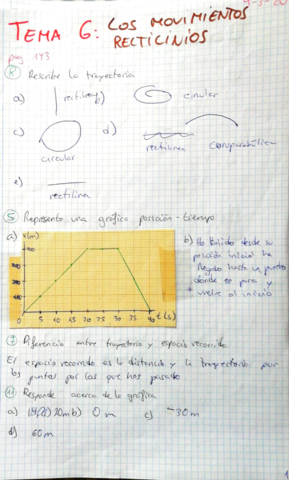 4-5-20
TEMA 6: LOS MOVIMIENTOS
RECTICINIOS
pag 143
Describe la trayectoria
a) rectilinea b) circular
c) d)
circular rectilinea
e)
rectilinea
5 Representa una gráfica posición - tiempo
a) x(m) b) Ha salido desde su
posición inicial ha
llegado hasta un punto
donde se para y
vuelve al inicio
5 10 15 20 25 30 35 40 t (s)
7 Diferencia entre trayectoria y espacio recorrido
El espacio recorrido es la distancia y la trayectoria por
los puntos por los que has pasado
11 Responde acerca de la gráfica
a) 20m b) 0 m c) -30m
d) 60m
1